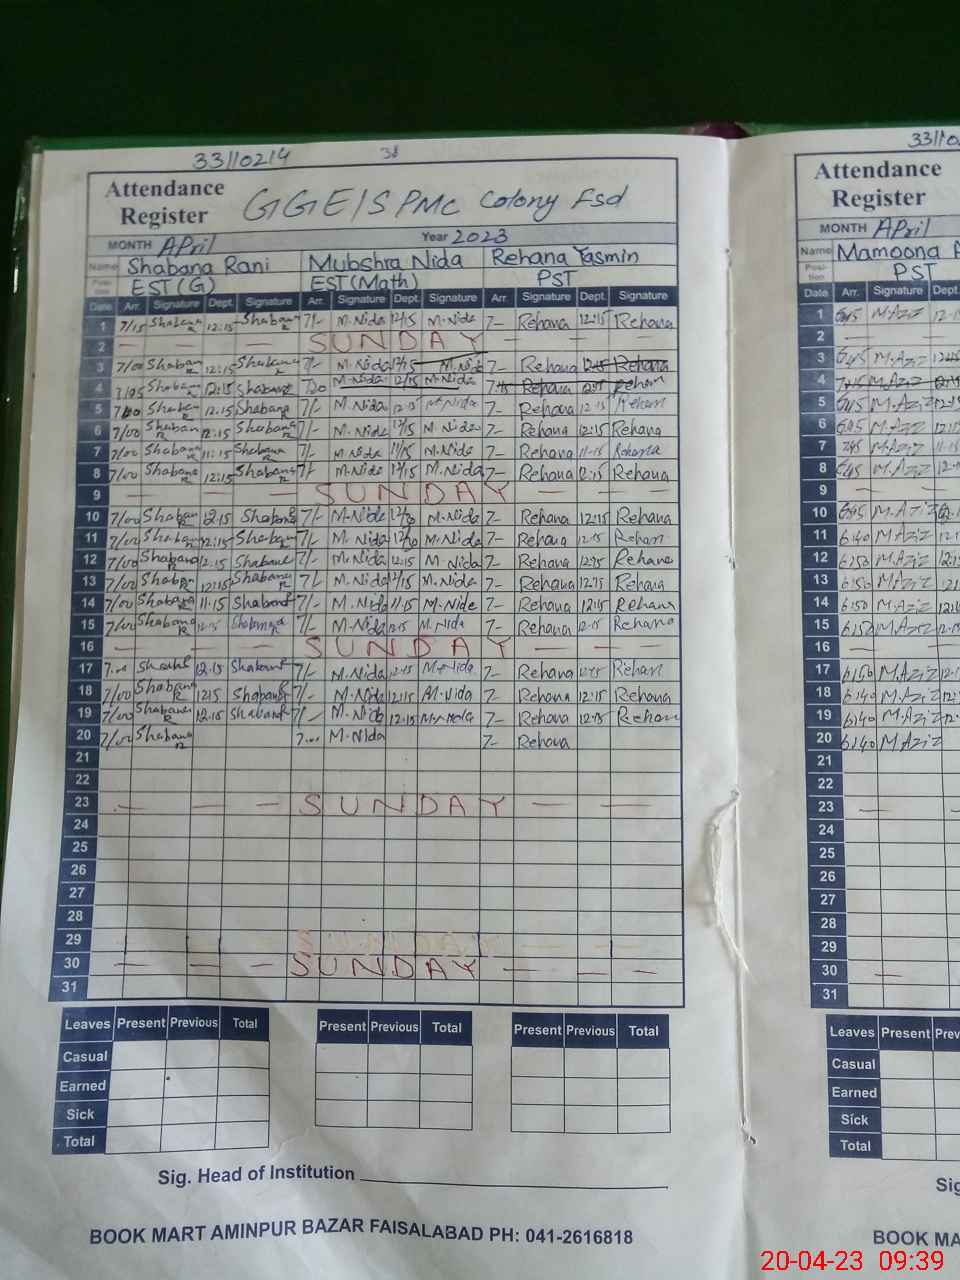 33110214
Attendance Register GGE/S PMC Colony Fsd
MONTH April Year 2023
Name Shabana Rani Mubshra Nida Rehana Yasmin
Position EST(G) EST(Math) PST
Date Arr. Signature Dept. Signature Arr. Signature Dept. Signature Arr. Signature Dept. Signature
1 7/15 Shabana R 12:15 Shabana R 7/- M.Nida 12/15 M.Nida 7- Rehana 12:15 Rehana
2 — — — SUNDAY — — —
3 7/00 Shaban 12:15 Shabana 7/- M.Nida 12/15 M.Nida 7- Rehana 12:15 Rehana
4 7/05 12:15 Shabana M.Nida 12/15 M.Nida Rehana Rehan
5 7/00 Shaban 12:15 Shabana 7/- M.Nida 12:15 M.Nida 7- Rehana 12:15 Rehan
6 7/00 Shaban R 12:15 Shabana R 7/- M.Nida 12/15 M.Nida 7- Rehana 12:15 Rehana
7 7/00 Shabana R 11:15 Shabana R 7/- M.Nida 11/15 M.Nida 7- Rehana 11:15 Rehana
8 7/00 Shabana R 12:15 Shabana R 7/- M.Nida 12/15 M.Nida 7- Rehana 12:15 Rehana
9 — — — SUNDAY — — —
10 7/00 Shaban R 12:15 Shabana R 7/- M.Nida M.Nida 7- Rehana 12:15 Rehana
11 7/00 Shaban 12:15 Shaban R 7/- M.Nida M.Nida 7- Rehana 12:15 Rehan
12 7/00 Shabana R 12:15 Shabana 7/- M.Nida 12:15 M.Nida 7- Rehana Rehana
13 7/00 Shaba R 12:15 Shabana R 7/- M.Nida 12/15 M.Nida 7- Rehana Rehana
14 7/00 Shabana R 11:15 Shabana 7/- M.Nida 11:15 M.Nida 7- Rehana 12:15 Rehana
15 7/00 Shabana R 12:15 Shabana 7/- M.Nida 12:15 M.Nida 7- Rehana 12:15 Rehana
16 — — — SUNDAY — — —
17 12:15 Shabana 7/- M.Nida 12:15 M.Nida 7- Rehana Rehan
18 7/00 Shabana R 12:15 Shabana 7/- M.Nida 12:15 M.Nida 7- Rehana 12:15 Rehana
19 7/00 Shabana R 12:15 Shabana 7/- M.Nida 12:15 M.Nida 7- Rehana 12:15 Rehan
20 7/00 Shabana R M.Nida 7- Rehana
21
22
23 — — — SUNDAY — —
24
25
26
27
28
29 SUNDAY
30 — — — SUNDAY — — —
31
Leaves Present Previous Total Present Previous Total Present Previous Total
Casual
Earned
Sick
Total
Sig. Head of Institution
BOOK MART AMINPUR BAZAR FAISALABAD PH: 041-2616818
Attendance Register
MONTH April
Name Mamoona
Position PST
Date Arr. Signature Dept.
1 6:45 M.Aziz
2 — —
3 6:45 M.Aziz
4 M.Aziz
5 6:45 M.Aziz
6 6:45 M.Aziz
7 M.Aziz
8 6:45 M.Aziz
9 — —
10 6:45 M.Aziz
11 6:40 M.Aziz
12 6:50 M.Aziz
13 6:50 M.Aziz
14 6:50 M.Aziz
15 6:50 M.Aziz
16 — —
17 6:50 M.Aziz
18 6:40 M.Aziz
19 6:40 M.Aziz
20 6:40 M.Aziz
21
22
23 —
24
25
26
27
28
29
30 —
31
Leaves Present
Casual
Earned
Sick
Total
BOOK
20-04-23 09:39